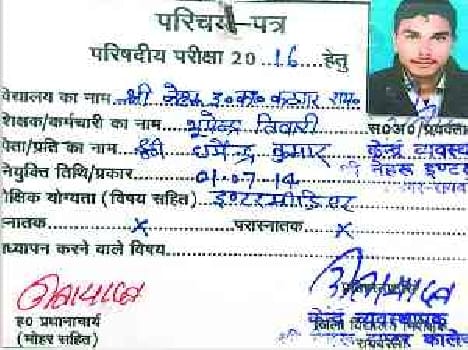 परिचय-पत्र
परिषदीय परीक्षा 2016 हेतु
विद्यालय का नाम श्री नेहरू इ०का०
शिक्षक/कर्मचारी का नाम भूपेन्द्र तिवारी स०अ०/प्रवक्ता
पिता/प्रति का नाम श्री धर्मेन्द्र कुमार केन्द्र व्यवस्था
नियुक्ति तिथि/प्रकार 01-07-14 श्री नेहरू इण्टर
शैक्षिक योग्यता (विषय सहित) इण्टरमीडिएट
स्नातक X परास्नातक X
अध्यापन करने वाले विषय
ह० प्रधानाचार्य केन्द्र व्यवस्थापक
(मोहर सहित) श्री नेहरू इण्टर कालेज